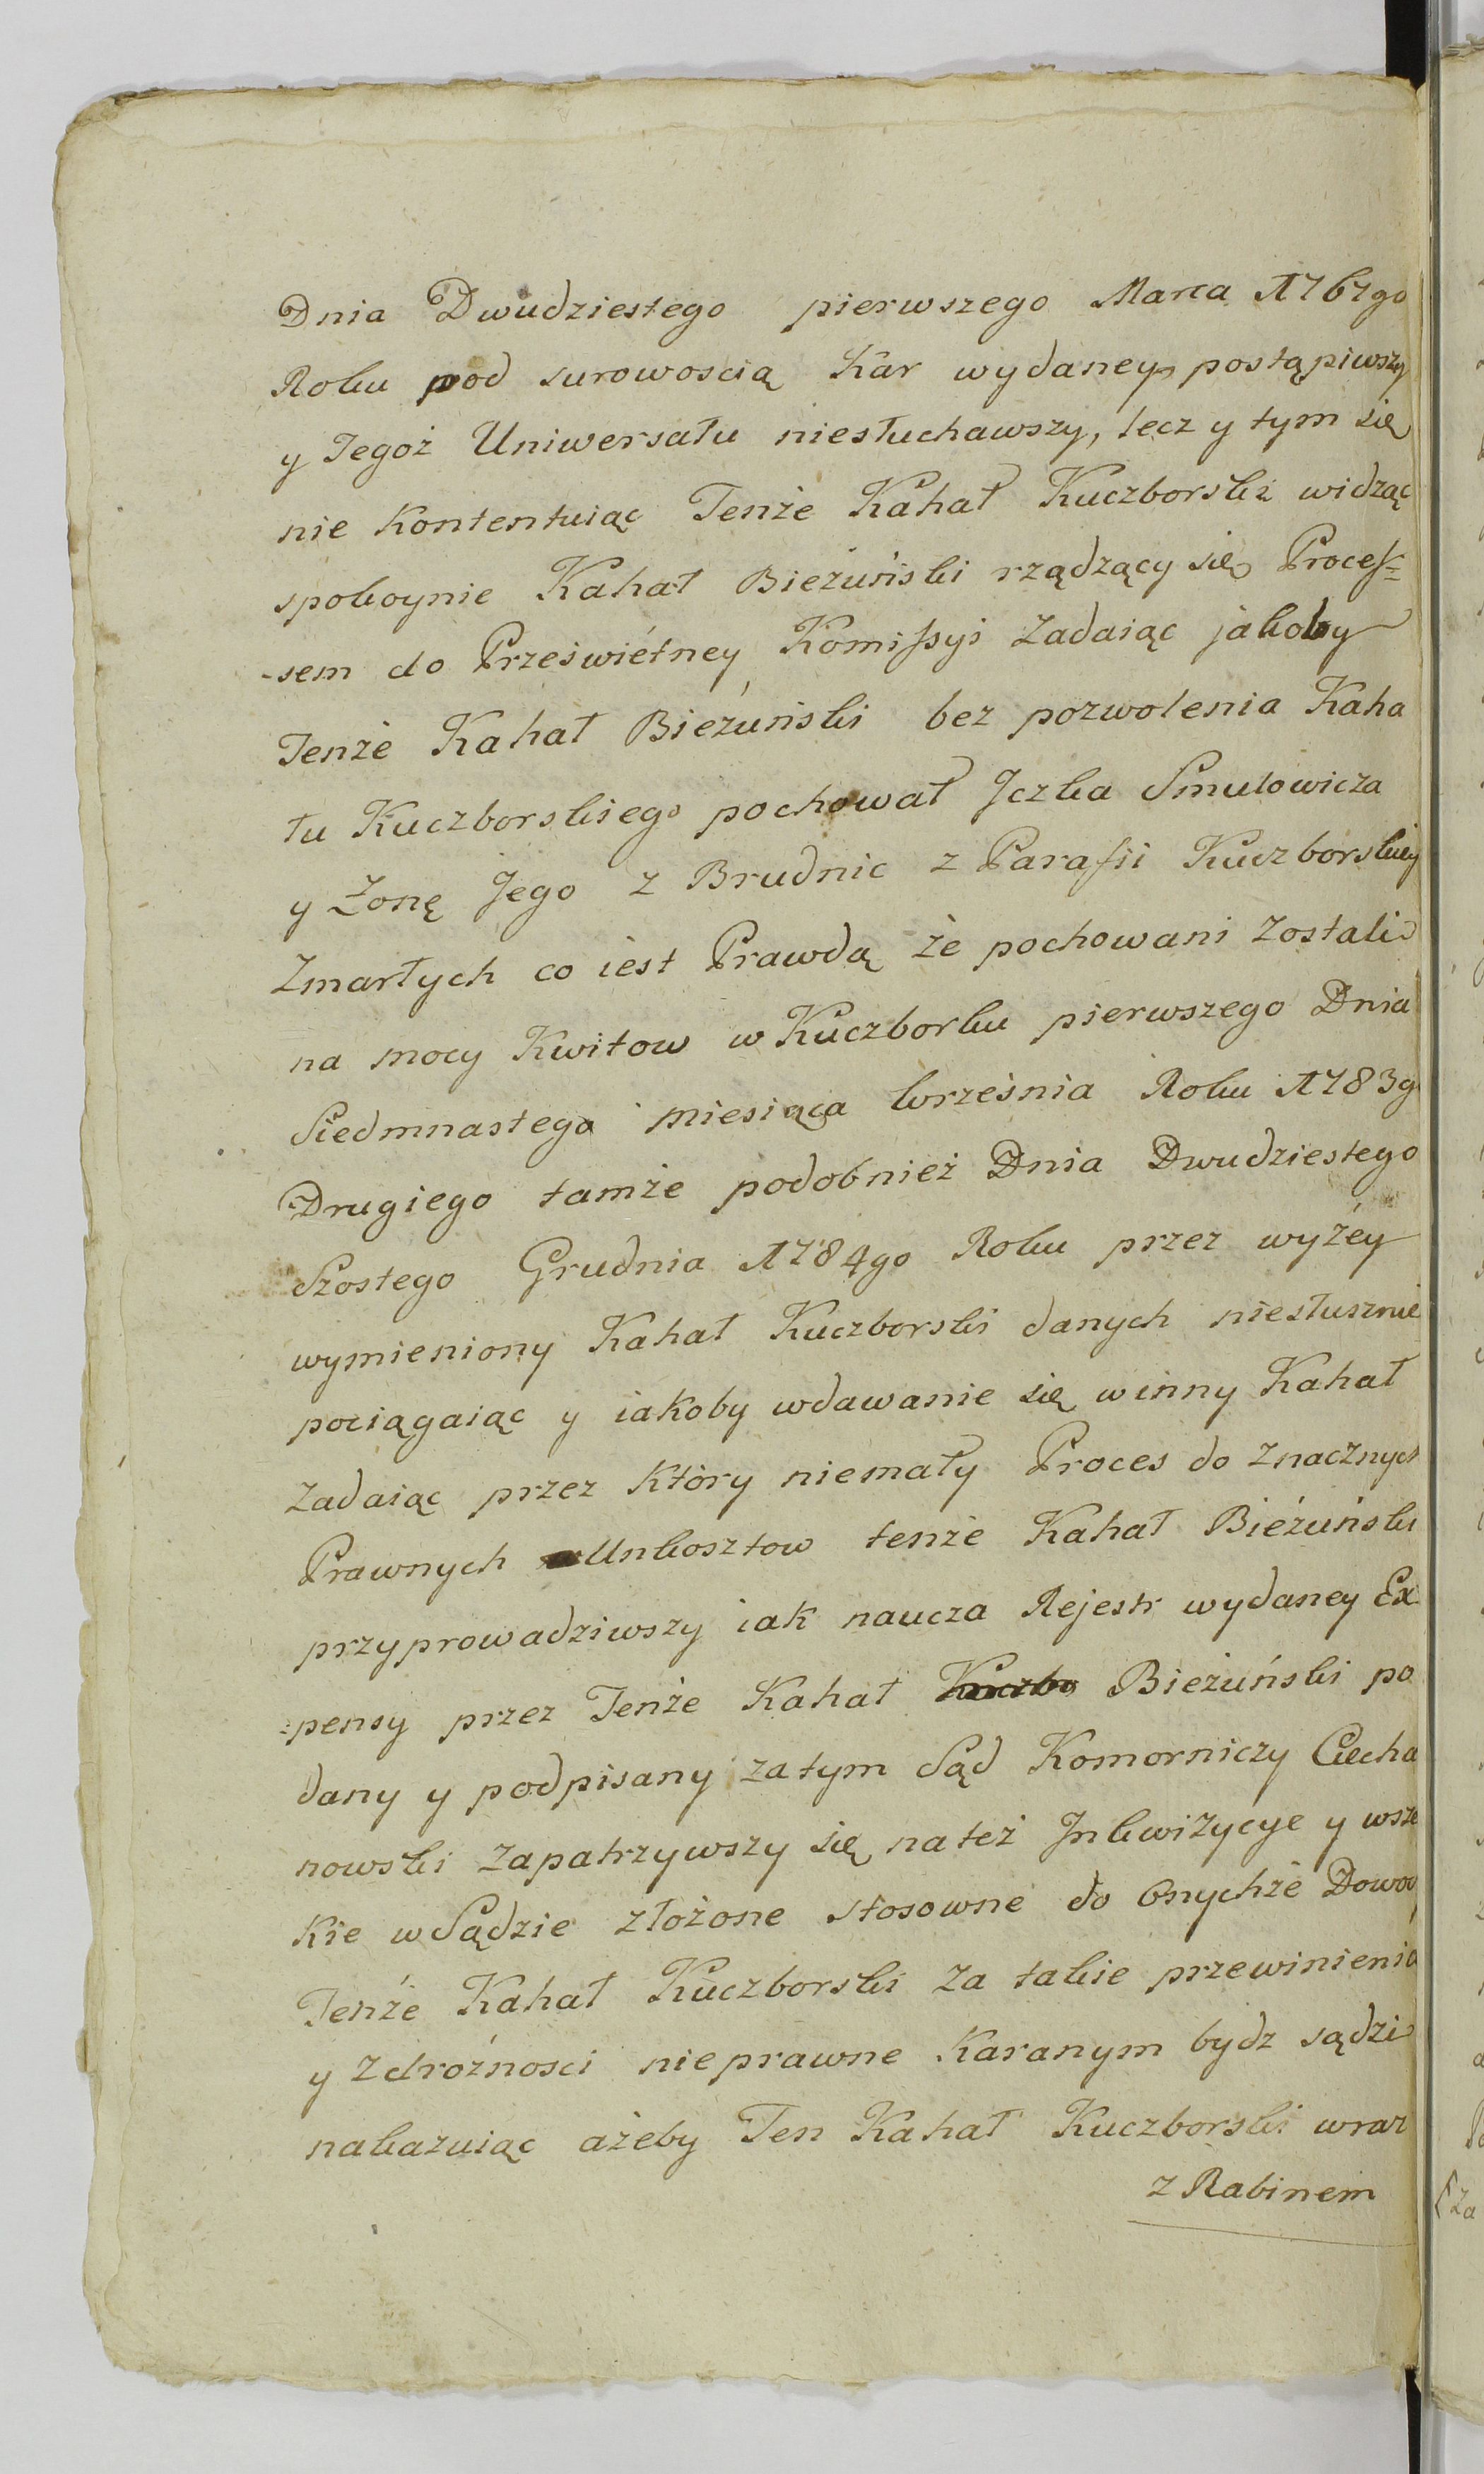 Dnia Dwudziestego pierwszego Marca 1767go
Roku pod surowoscią Kar wydaney postąpiwszy
y Jegoż Uniwersału niesłuchawszy, lecz y tym się
nie Kontentuiąc Tenże Kahał Kuczborski widząc
spokoynie Kahał Bieżuński rządzący się Proces=
-sem do Prześwietney Komissyi Zadaiąc jakoby
Tenże Kahał Bieżuński bez pozwolenia Kaha
łu Kuczborskiego pochował Jczka Smulowicza
y Żonę Jego z Brudnic z Parafii Kuczborskiey
Zmarłych co iest Prawdą że pochowani Zostali
na mocy Kwitow w Kuczborku pierwszego Dnia
Siedmnastego miesiąca Września Roku 1783g
Drugiego tamże podobnież Dnia Dwudziestego
Szostego Grudnia 1784go Roku przez wyżey
wymieniony Kahał Kuczborski danych niesłusznie
pociągaiąc y iakoby wdawanie się winny Kahał
Zadaiąc przez Który niemały Proces do Znacznych
Prawnych Unkosztow tenże Kahał Bieżuński
przyprowadziwszy iak naucza Rejestr wydaney Ex
:pensy przez Tenże Kahał Kuczbo Bieżuński po
dany y podpisany zatym Sąd Komorniczy Ciecha
nowski Zapatrzywszy się na też Jnkwizycye y wsze
Kie w Sądzie złożone stosowne do Onychże Dowod
Tenże Kahał Kuczborski Za takie przewinienia
y Zdrożnosci nieprawne Karanym bydz sądzi
nakazuiąc ażeby Ten Kahał Kuczborski wraz
z Rabinem